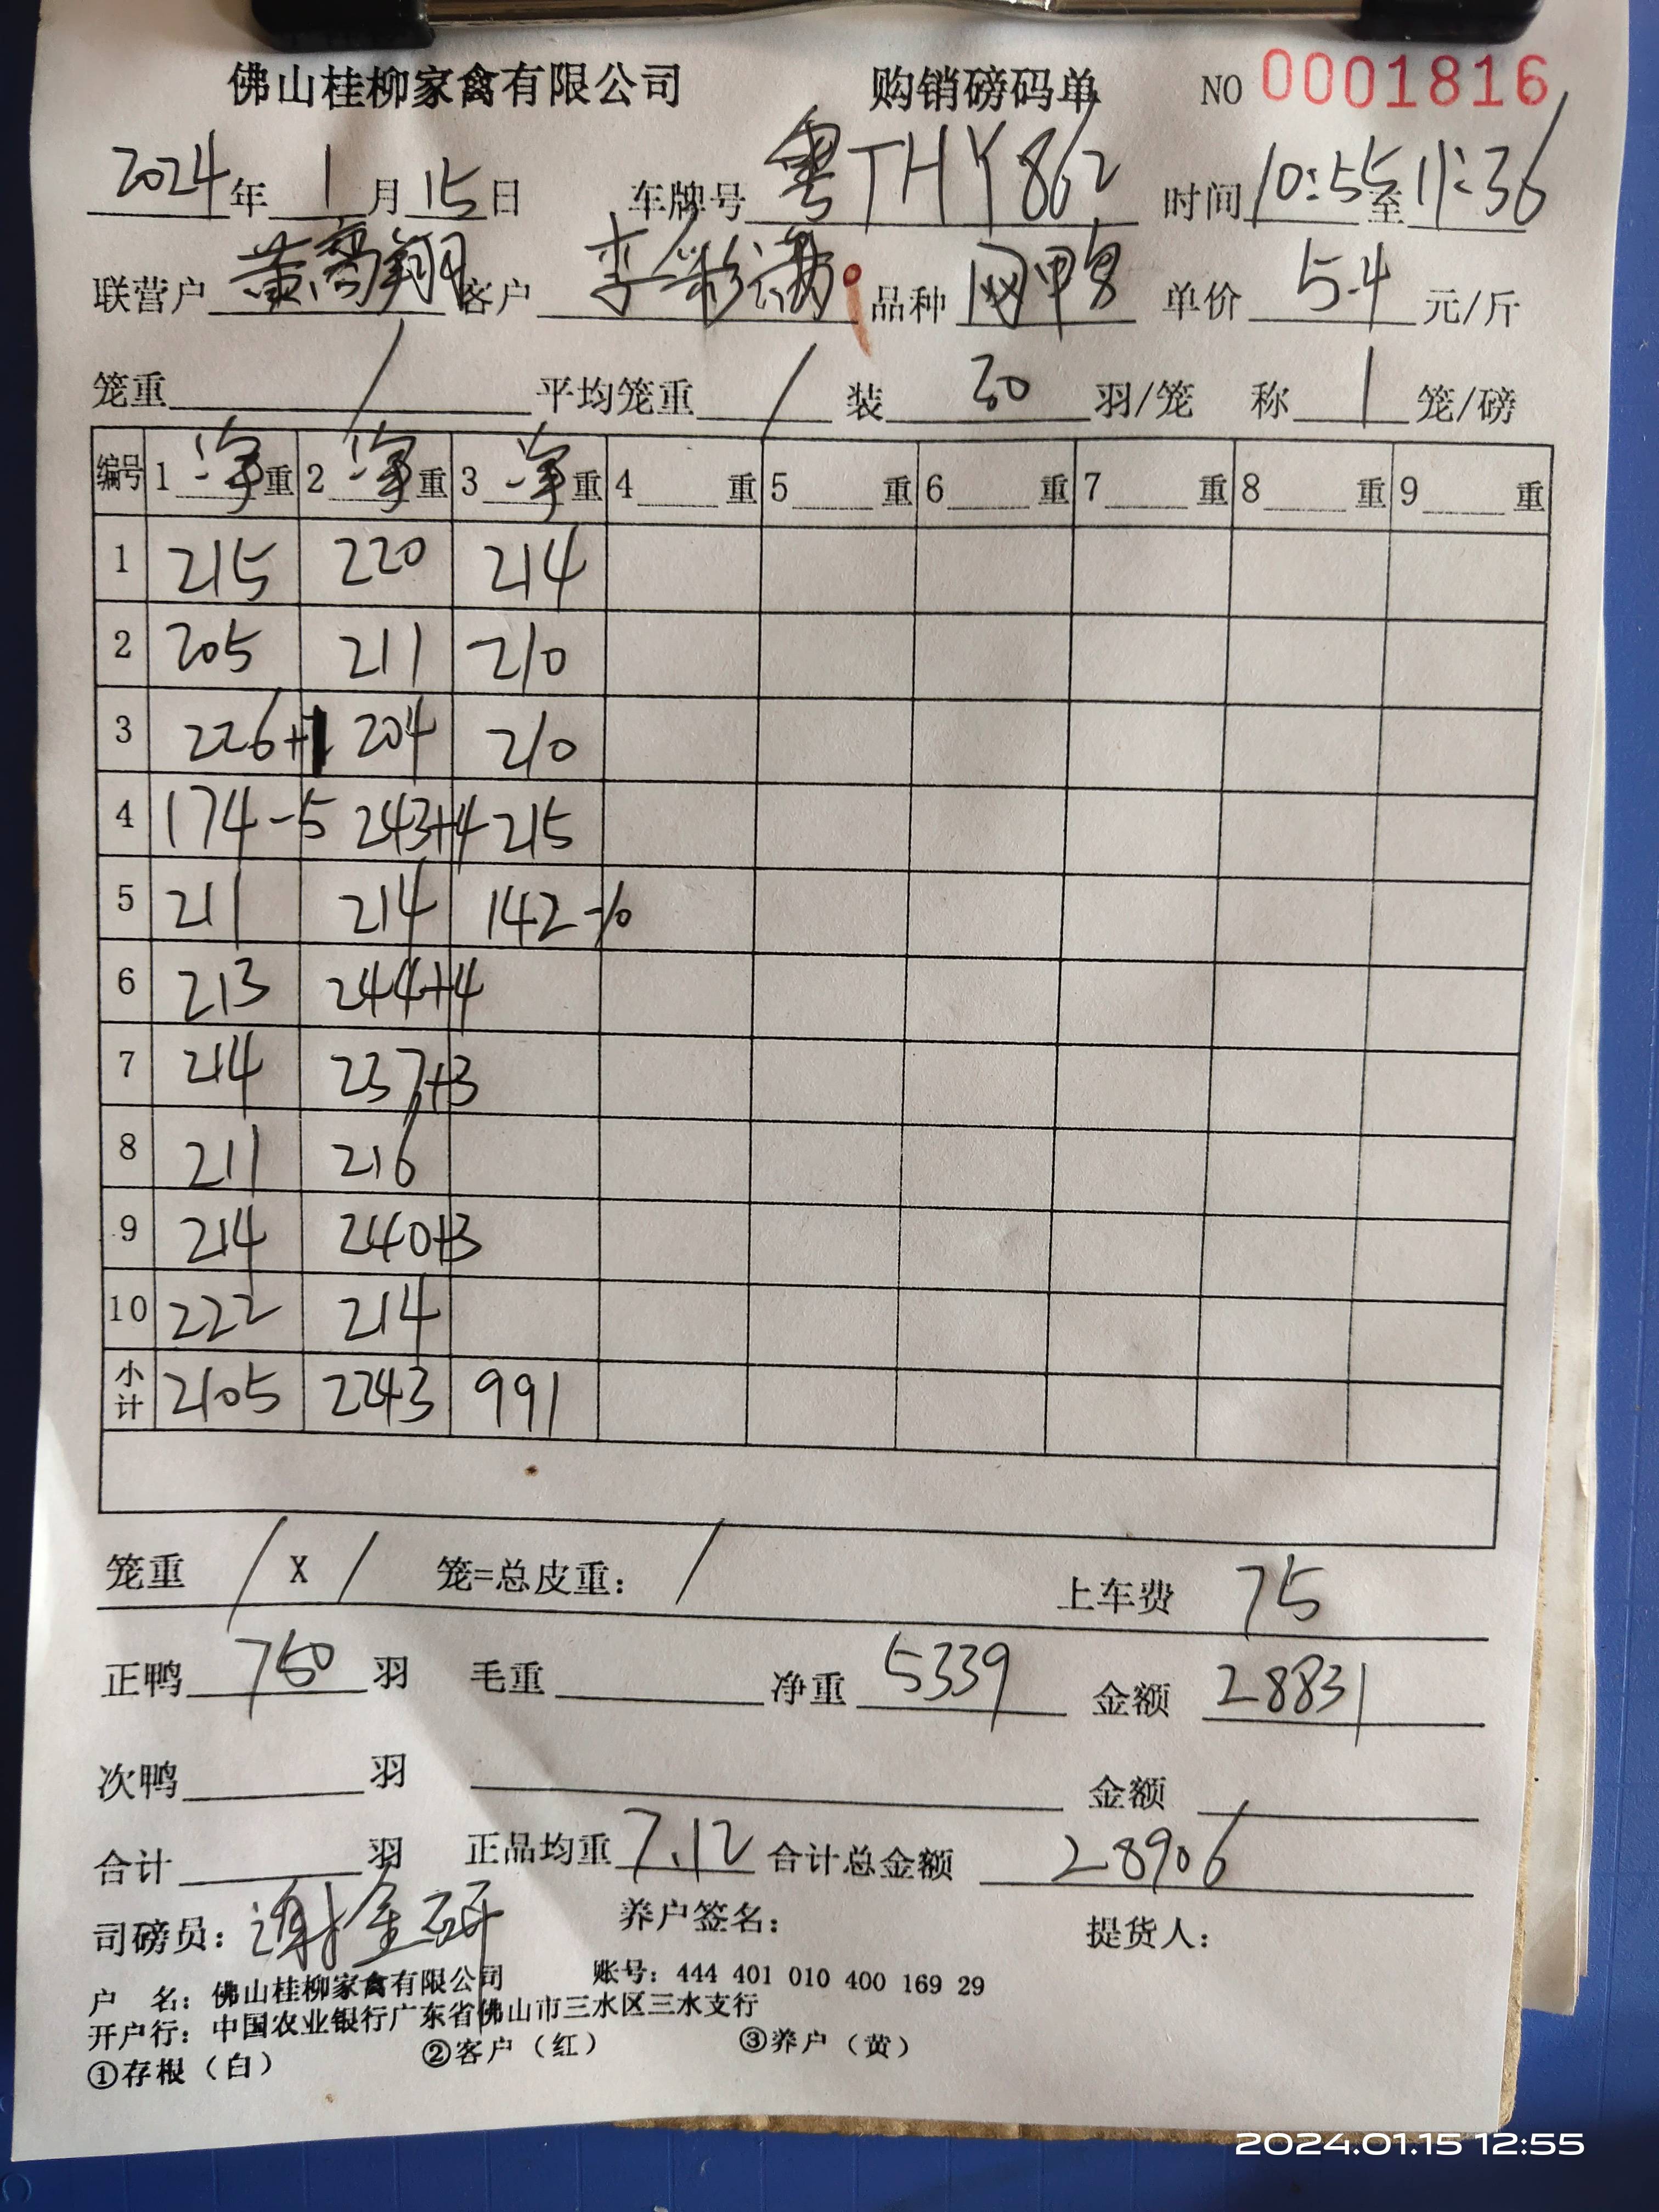 佛山桂柳家禽有限公司 购销磅码单 NO 0001816
2024年 1月15日 车牌号 粤THY862 时间10:55至11:36
联营户 黄高翔 客户 李彩满 品种 网甲鸟 单价 5.4 元/斤
笼重 / 平均笼重 / 装 30 羽/笼 称 1 笼/磅
编号 1 净重 2 净重 3 净重 4 重 5 重 6 重 7 重 8 重 9 重
1 215 220 214
2 205 211 210
3 226+1 204 210
4 174-5 243+4 215
5 211 214 142-10
6 213 244+4
7 214 237+3
8 211 216
9 214 240+3
10 222 214
小计 2105 2243 991
笼重 / X / 笼=总皮重: / 上车费 75
正鸭 750 羽 毛重 净重 5339 金额 28831
次鸭 羽 金额
合计 羽 正品均重 7.12 合计总金额 28906
司磅员: 谢金研 养户签名: 提货人:
户 名: 佛山桂柳家禽有限公司 账号: 444 401 010 400 169 29
开户行: 中国农业银行广东省佛山市三水区三水支行
①存根（白） ②客户（红） ③养户（黄）
2024.01.15 12:55